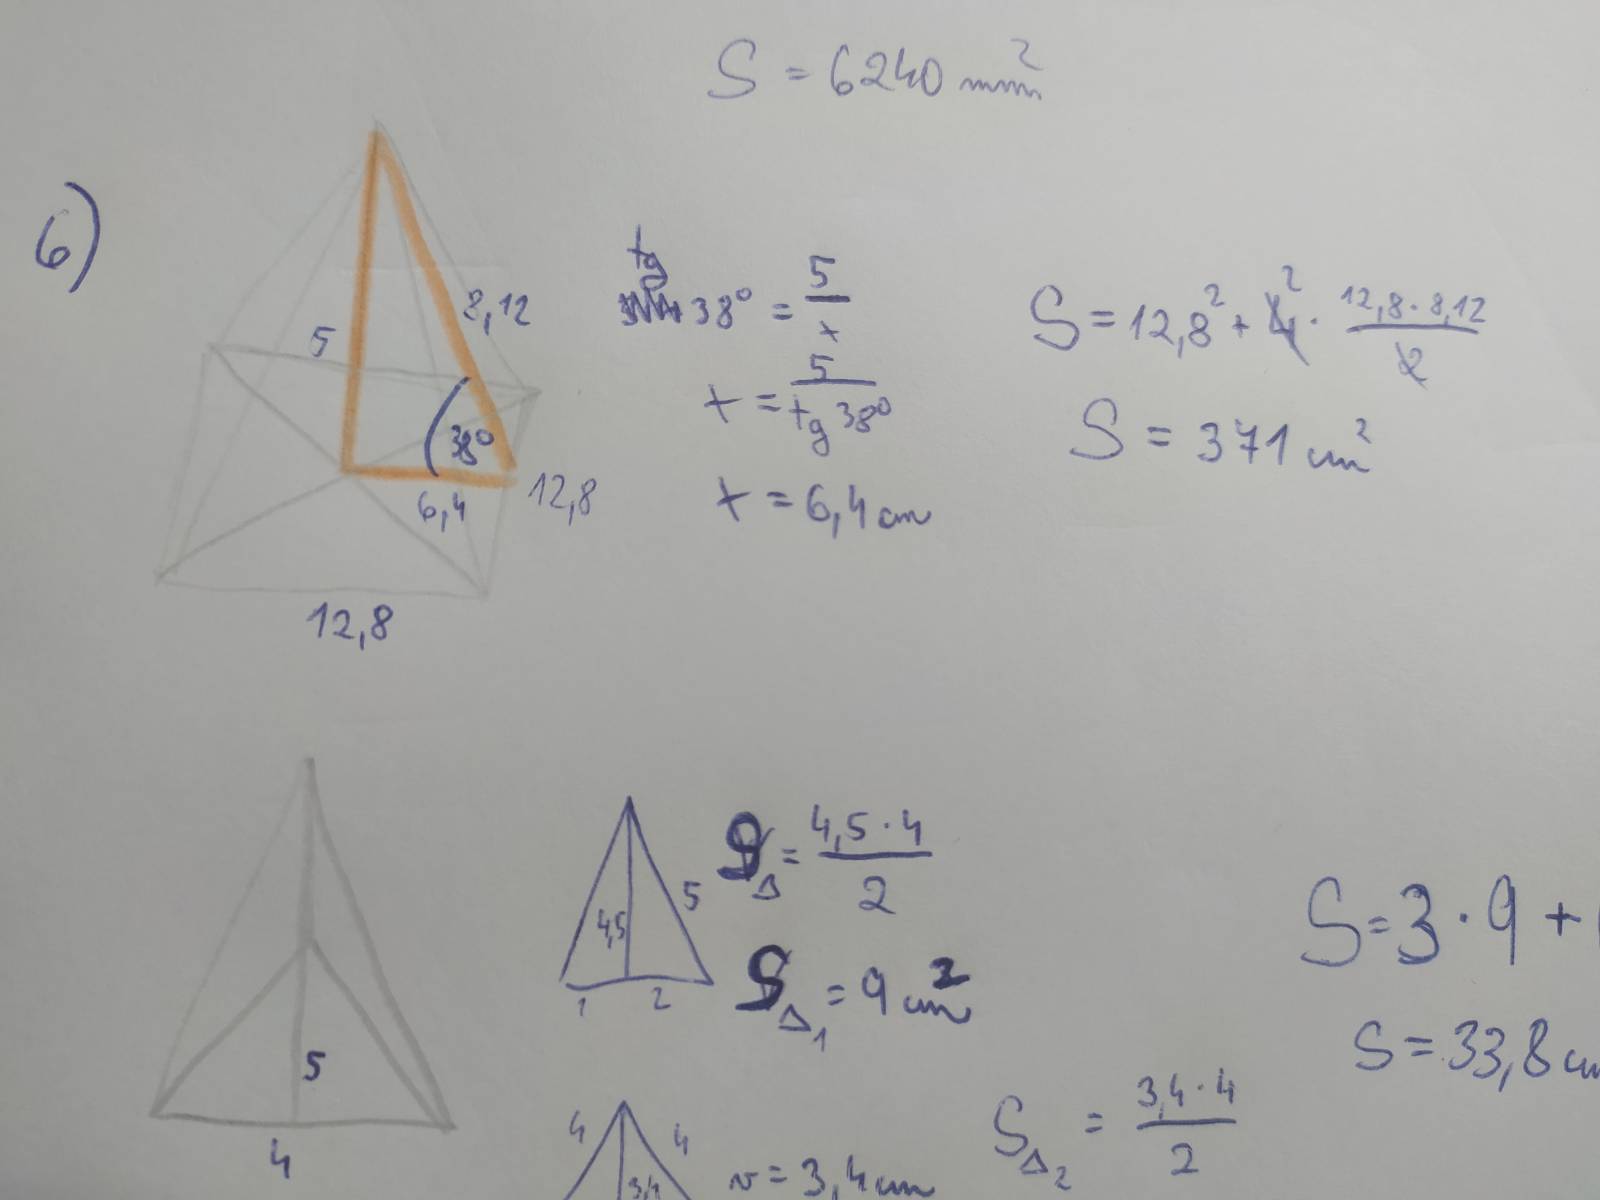 S = 6240 mm²
6)
5
8,12
38°
6,4
12,8
12,8
tg 38° = 5/x
x = 5/tg 38°
x = 6,4 cm
S = 12,8² + 4² · 12,8 · 8,12/2
S = 371 cm²
5
4
4,5
5
1
2
S△ = 4,5 · 4/2
S△₁ = 9 cm²
S = 3 · 9 +
S = 33,8 cm
4
4
3,4
v = 3,4 cm
S△₂ = 3,4 · 4/2